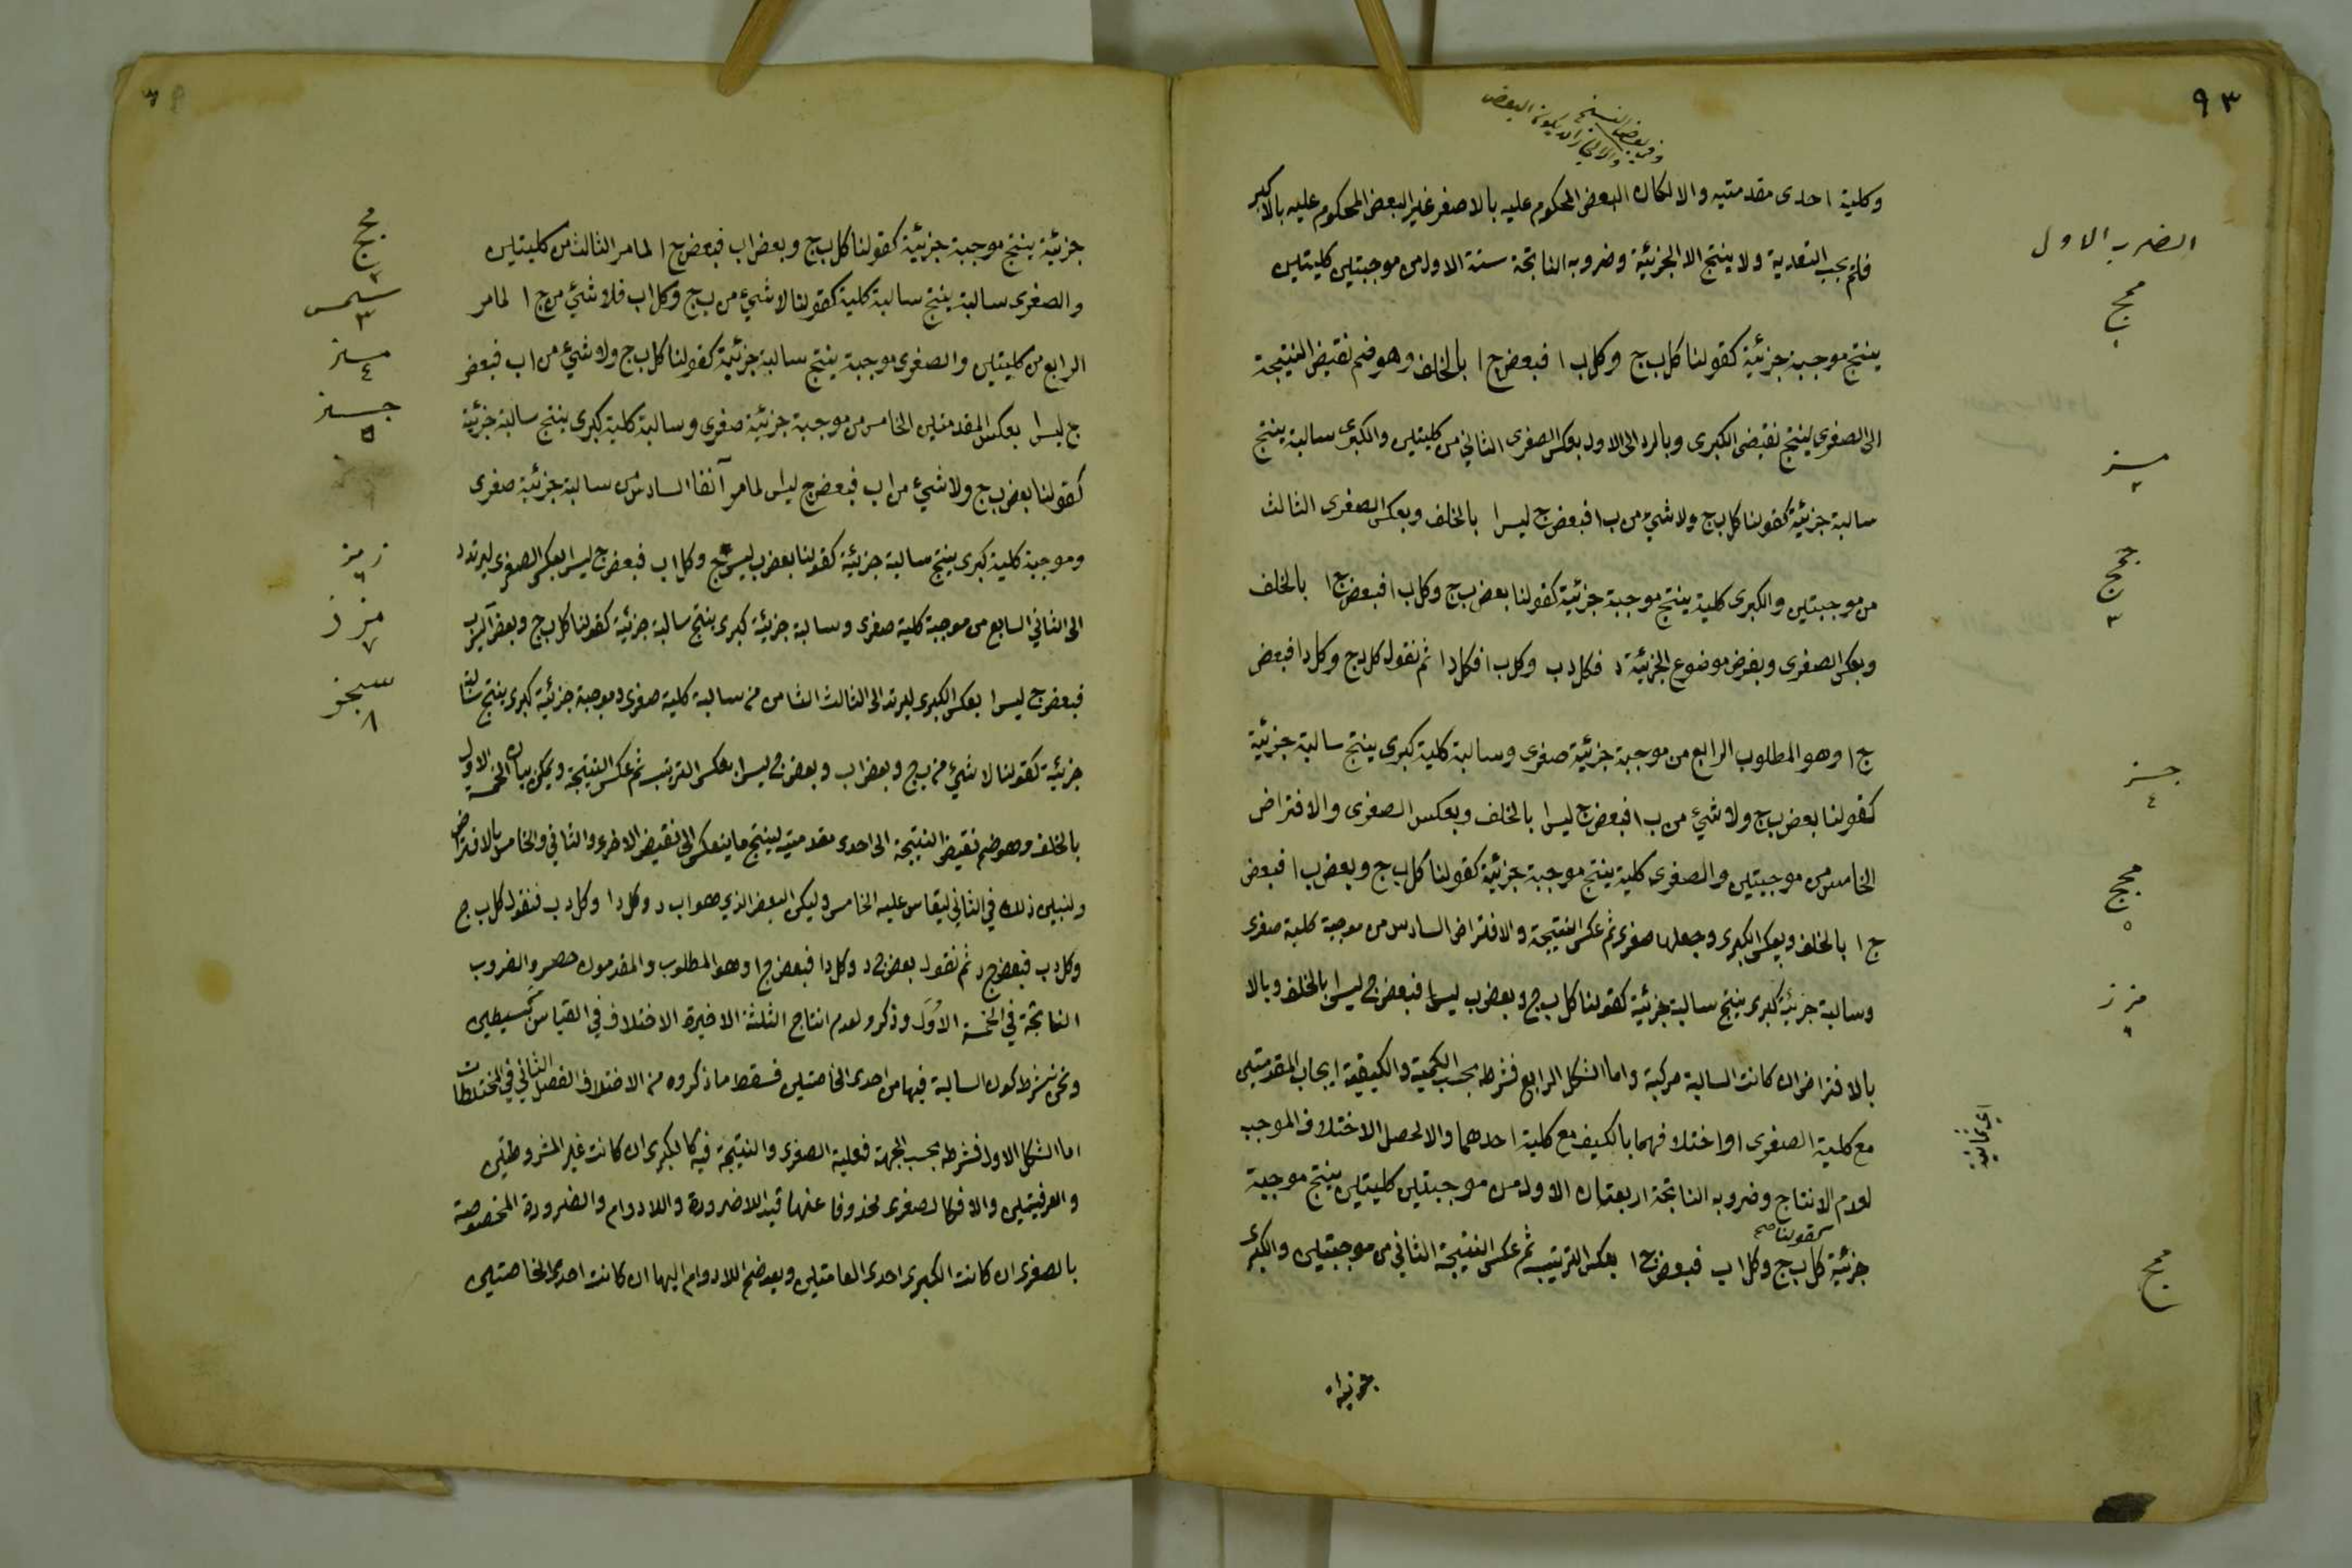 ٩٣
وفي بعض النسخ
والا لجاز ان يكون البعض
وكلية احدى مقدمتيه والا لكان البعض المحكوم عليه بالاصغر غير البعض المحكوم عليه بالاكبر
فلم يجب التعدية ولا ينتج الا الجزئية وضروبه الناتجة ستة الاول من موجبتين كليتين
ينتج موجبة جزئية كقولنا كل ب ج وكل ب ا فبعض ج ا بالخلف وهو ضم نقيض النتيجة
الى الصغرى لينتج نقيض الكبرى وبالرد الى الاول بعكس الصغرى الثاني من كليتين والكبرى سالبة ينتج
سالبة جزئية كقولنا كل ب ج ولا شيء من ب ا فبعض ج ليس ا بالخلف وبعكس الصغرى الثالث
من موجبتين والكبرى كلية ينتج موجبة جزئية كقولنا بعض ب ج وكل ب ا فبعض ج ا بالخلف
وبعكس الصغرى وبفرض موضوع الجزئية د فكل د ب وكل ب ا فكل د ا ثم نقول كل د ج وكل د ا فبعض
ج ا وهو المطلوب الرابع من موجبة جزئية صغرى وسالبة كلية كبرى ينتج سالبة جزئية
كقولنا بعض ب ج ولا شيء من ب ا فبعض ج ليس ا بالخلف وبعكس الصغرى والافتراض
الخامس من موجبتين والصغرى كلية ينتج موجبة جزئية كقولنا كل ب ج وبعض ب ا فبعض
ج ا بالخلف وبعكس الكبرى وجعلها صغرى ثم عكس النتيجة والافتراض السادس من موجبة كلية صغرى
وسالبة جزئية كبرى ينتج سالبة جزئية كقولنا كل ب ج وبعض ب ليس ا فبعض ج ليس ا بالخلف وبالا
بالافتراض ان كانت السالبة مركبة واما الشكل الرابع فشرطه بحسب الكمية والكيفية ايجاب المقدمتين
مع كلية الصغرى او اختلافهما بالكيف مع كلية احدهما والا لحصل الاختلاف الموجب
لعدم الانتاج وضروبه الناتجة اربعتان الاول من موجبتين كليتين ينتج موجبة
كقولنا صح
جزئية كل ب ج وكل ا ب فبعض ج ا بعكس الترتيب ثم عكس النتيجة الثاني من موجبتين والكبرى
جزئية
الضرب الاول
ممج
١
مسز
٢
ججج
٣
جسز
٤
مجج
٥
مزز
٦
اي ثمانية
ممج
جزئية ينتج موجبة جزئية كقولنا كل ب ج وبعض ا ب فبعض ج ا لما مر الثالث من كليتين
والصغرى سالبة ينتج سالبة كلية كقولنا لا شيء من ب ج وكل ا ب فلا شيء من ج ا لما مر
الرابع من كليتين والصغرى موجبة ينتج سالبة جزئية كقولنا كل ب ج ولا شيء من ا ب فبعض
ج ليس ا بعكس المقدمتين الخامس من موجبة جزئية صغرى وسالبة كلية كبرى ينتج سالبة جزئية
كقولنا بعض ب ج ولا شيء من ا ب فبعض ج ليس لما مر آنفا السادس من سالبة جزئية صغرى
وموجبة كلية كبرى ينتج سالبة جزئية كقولنا بعض ب ليس ج وكل ا ب فبعض ج ليس ا بعكس الصغرى ليرتد
الى الثاني السابع من موجبة كلية صغرى وسالبة جزئية كبرى ينتج سالبة جزئية كقولنا كل ب ج وبعض ا ليس ب
فبعض ج ليس ا بعكس الكبرى ليرتد الى الثالث الثامن من سالبة كلية صغرى وموجبة جزئية كبرى ينتج سالبة
جزئية كقولنا لا شيء من ب ج وبعض ا ب وبعض ج ليس ا بعكس الترتيب ثم عكس النتيجة ويمكن بيان الخمسة الاول
بالخلف وهو ضم نقيض النتيجة الى احدى مقدمتيه لينتج ما ينعكس الى نقيض الاخرى والثاني والخامس بالافتراض
ولنبين ذلك في الثاني ليقاس عليه الخامس وليكن البعض الذي هو ا ب د وكل د ا وكل د ب فنقول كل ب ج
وكل د ب فبعض ج د ثم نقول بعض ج د وكل د ا فبعض ج ا وهو المطلوب والمقدمون حصروا الضروب
الناتجة في الخمسة الاول وذكروا لعدم انتاج الثلثة الاخيرة الاختلاف في القياس من بسيطين
ونحن نشرط كون السالبة فيها من احدى الخاصتين فسقط ما ذكروه من الاختلاف الفصل الثاني في المختلطات
اما الشكل الاول فشرطه بحسب الجهة فعلية الصغرى والنتيجة فيه كالكبرى ان كانت غير المشروطتين
والعرفيتين والا فكالصغرى محذوفا عنها قيد اللاضرورة واللادوام والضرورة المخصوصة
بالصغرى ان كانت الكبرى احدى العامتين وبعد ضم اللادوام اليها ان كانت احدى الخاصتين
مجج
٢
سمس
٣
مسز
٤
جسز
٥
زمز
٦
مزز
٧
سجز
٨